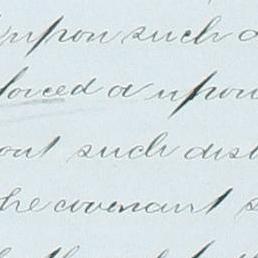 upon such
forced or upon
out such dist
the covenant s